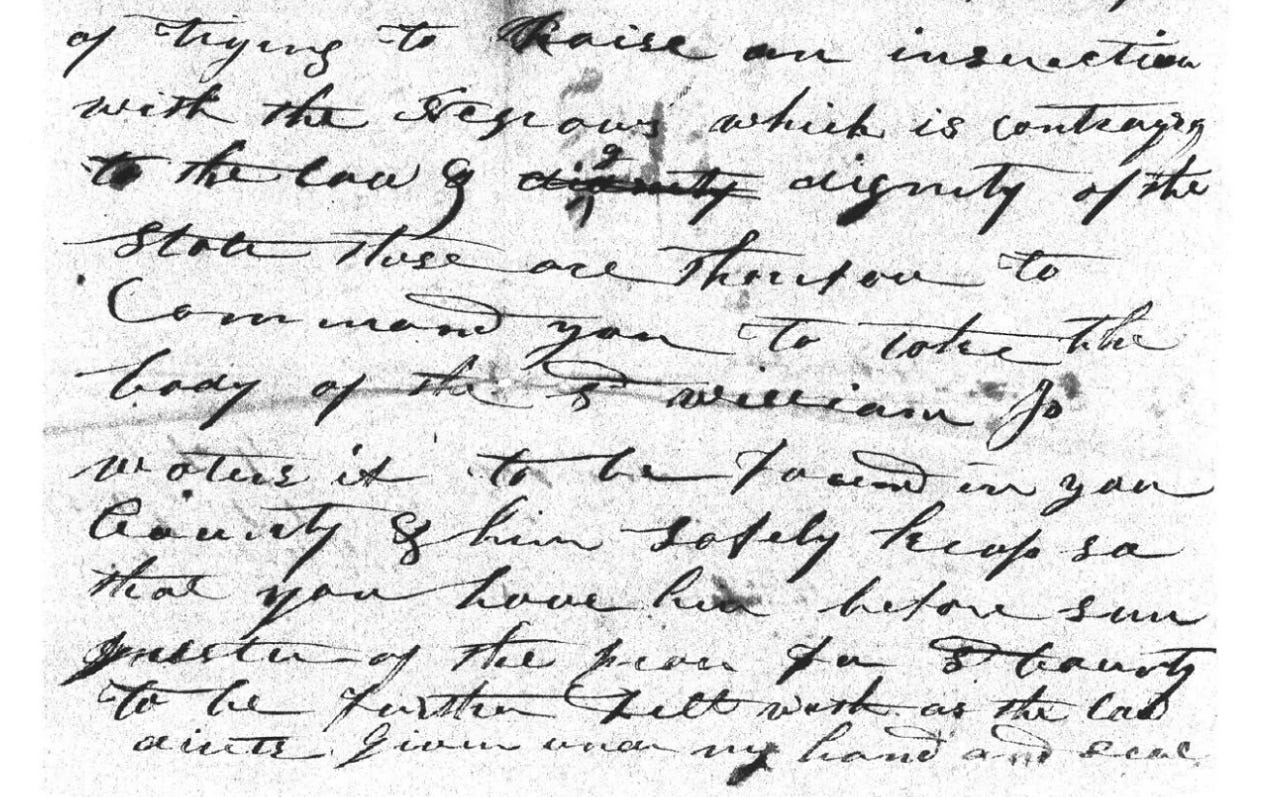 of trying to Raise an insurection
with the Negrows which is contrayry
to the law & dignity of the
State these are therefour to
Command you to take the
body of the sd william Jo
waters if to be found in you
County & him safely keep so
that you have him before sum
justice of the peace for sd County
to be further delt with as the law
directs Given under my hand and seal